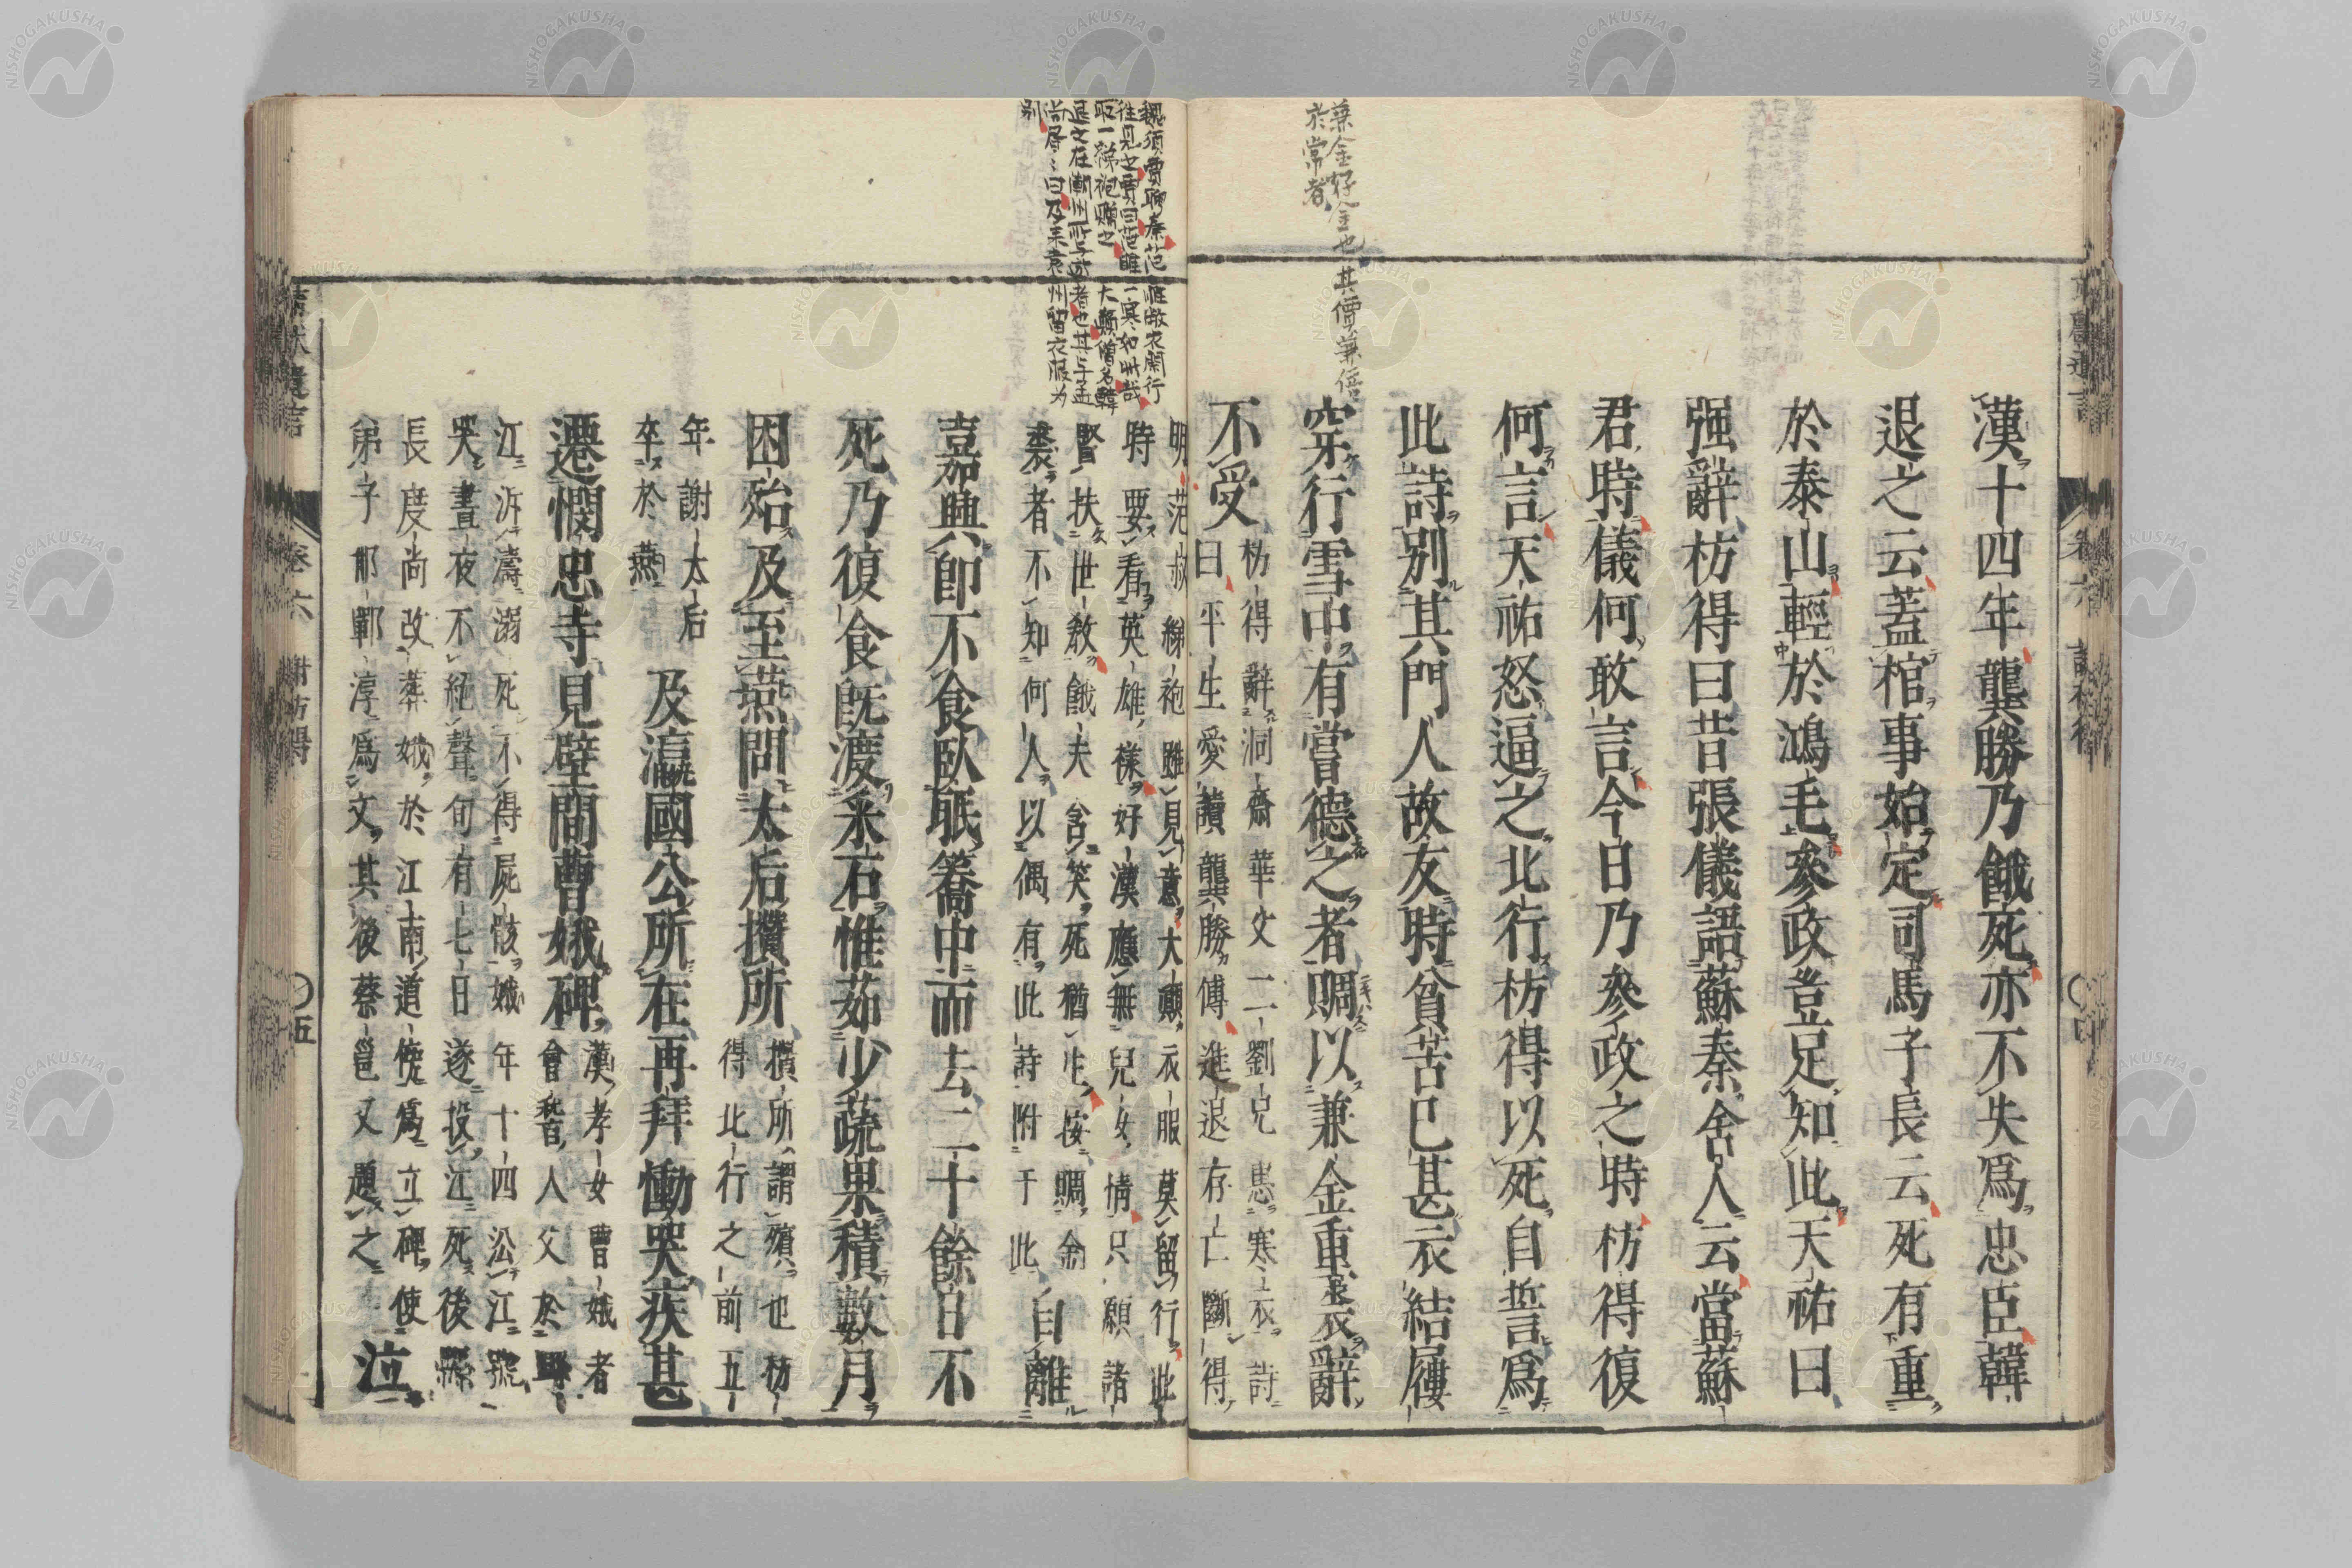 兼金好金也其價兼倍
於常者
漢十四年龔勝乃餓死亦不失爲忠臣韓
退之云蓋棺事始定司馬子長云死有重
於泰山輕於鴻毛參政豈足知此天祐曰
强辭枋得曰昔張儀語蘇秦舍人云當蘇
君時儀何敢言今日乃參政之時枋得復
何言天祐怒逼之北行枋得以死自誓爲
此詩別其門人故友時貧苦已甚衣結屨
穿行雪中有嘗德之者賙以兼金重裘辭
不受
枋得辭洞齋華文二劉兄惠寒衣詩
曰平生愛讀龔勝傳進退存亡斷得
魏須賈聘秦范雎敝衣閒行
往見之賈曰范雎一寒如此哉
取一綈袍贈之大顛僧名韓
退之在潮州所与游者也其与孟
尚書書曰及來袁州留衣服为
別
明范叔綈袍雖見意大顛衣服莫留行此
時要看英雄樣好漢應無兒女情只願諸
賢扶世教餓夫含笑死猶生按賙金
裘者不知何人以偶有此詩附于此自離
嘉興即不食臥眠簥中而去二十餘日不
死乃復食旣渡采石惟茹少蔬果積數月
困殆及至燕問太后攢所
攢所謂殯也枋
得北行之前五
年謝太后
卒於燕
及瀛國公所在再拜慟哭疾甚
遷憫忠寺見壁間曹娥碑
漢孝女曹娥者
會稽人父於縣
江泝濤溺死不得屍骸娥年十四沿江號
哭晝夜不絕聲旬有七日遂投江死後縣
長度尚改葬娥於江南道傍爲立碑使
弟子邯鄲淳爲文其後蔡邕又題之泣
卷六
謝枋得
〇五